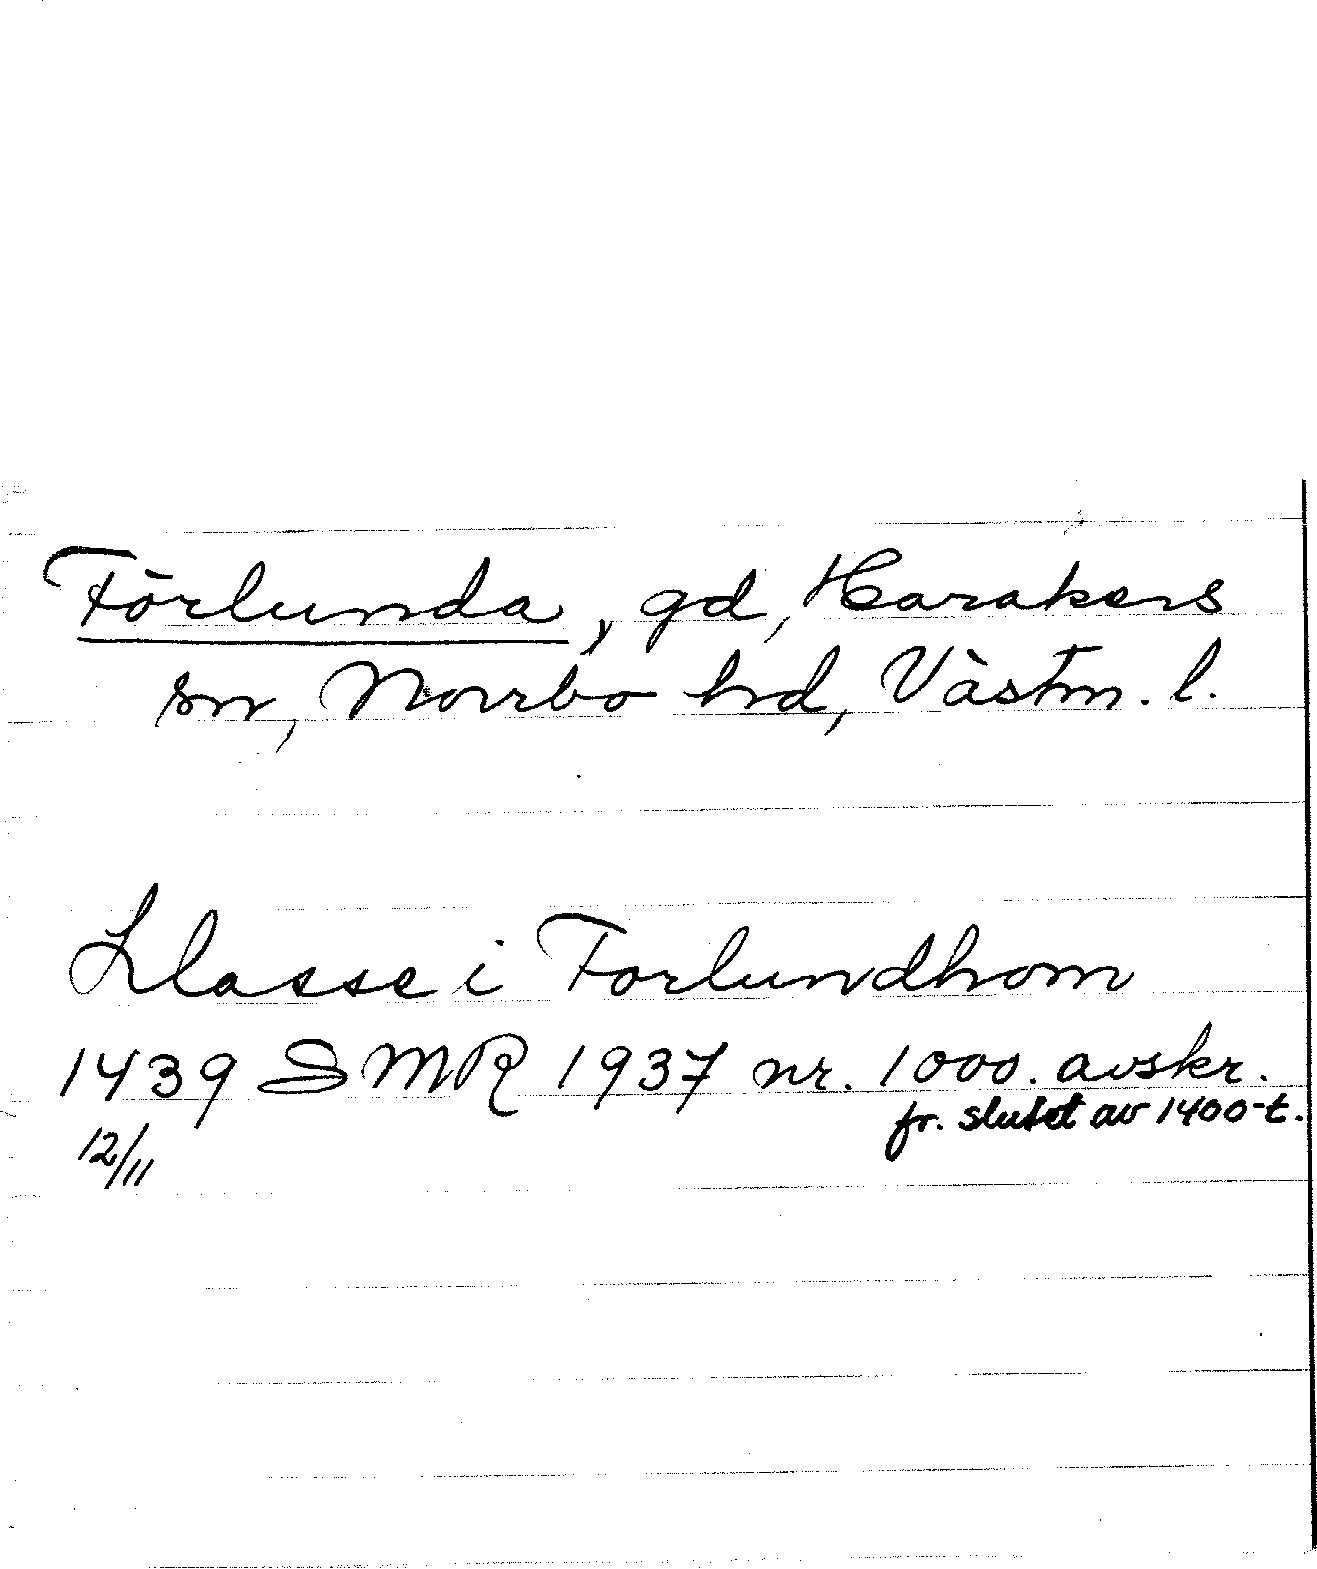 Förlunda, gd, Harakers
sn, Norrbo hd, Västm. l.
Klasse i Forlundhom
1439 SMR 1937 nr. 1000. avskr.
fr. slutet av 1400-t.
12/11